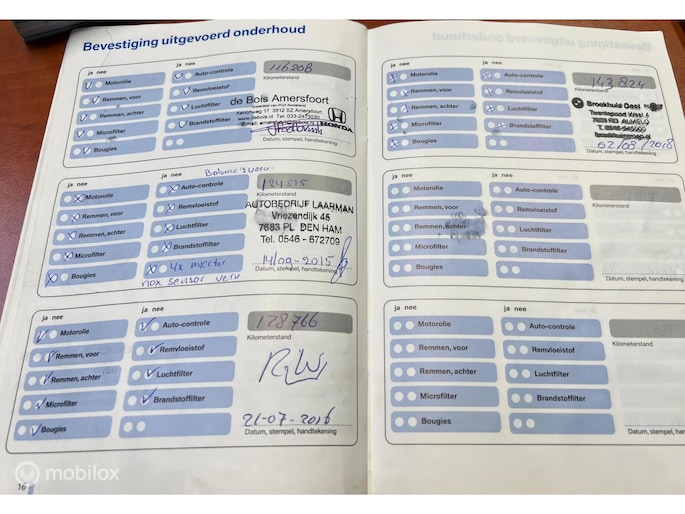 Bevestiging uitgevoerd onderhoud
ja nee
ja nee
Motorolie
Auto-controle
116208
Remmen, voor
Remvloeistof
Kilometerstand
Remmen, achter
Luchtfilter
de Bois Amersfoort
Microfilter
Brandstoffilter
HONDA
Bougies
Datum, stempel, handtekening
ja nee
ja nee
Motorolie
Auto-controle
124515
Remmen, voor
Remvloeistof
Kilometerstand
AUTOBEDRIJF LAARMAN
Remmen, achter
Luchtfilter
Vriezendijk 45
7683 PL DEN HAM
Microfilter
Brandstoffilter
Tel. 0546 - 672709
Bougies
4x
14/09-2015
nox sensor verv
Datum, stempel, handtekening
ja nee
ja nee
Motorolie
Auto-controle
128766
Remmen, voor
Remvloeistof
Kilometerstand
Remmen, achter
Luchtfilter
Microfilter
Brandstoffilter
21-07-2016
Bougies
Datum, stempel, handtekening
16
ja nee
ja nee
Motorolie
Auto-controle
143824
Remmen, voor
Remvloeistof
Kilometerstand
Remmen, achter
Luchtfilter
Broekhuis Oost
Microfilter
Brandstoffilter
7609 RD ALMELO
Bougies
02/08/2018
Datum, stempel, handtekening
ja nee
ja nee
Motorolie
Auto-controle
Remmen, voor
Remvloeistof
Kilometerstand
Remmen, achter
Luchtfilter
Microfilter
Brandstoffilter
Bougies
Datum, stempel, handtekening
ja nee
ja nee
Motorolie
Auto-controle
Remmen, voor
Remvloeistof
Kilometerstand
Remmen, achter
Luchtfilter
Microfilter
Brandstoffilter
Bougies
Datum, stempel, handtekening
mobilox